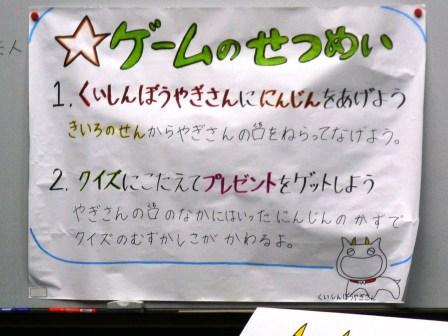 ☆ゲームのせつめい
1. くいしんぼうやぎさんににんじんをあげよう
きいろのせんからやぎさんの口をねらってなげよう。
2. クイズにこたえてプレゼントをゲットしよう
やぎさんの口のなかにはいったにんじんのかずで
クイズのむずかしさがかわるよ。
くいしんぼうやぎさん